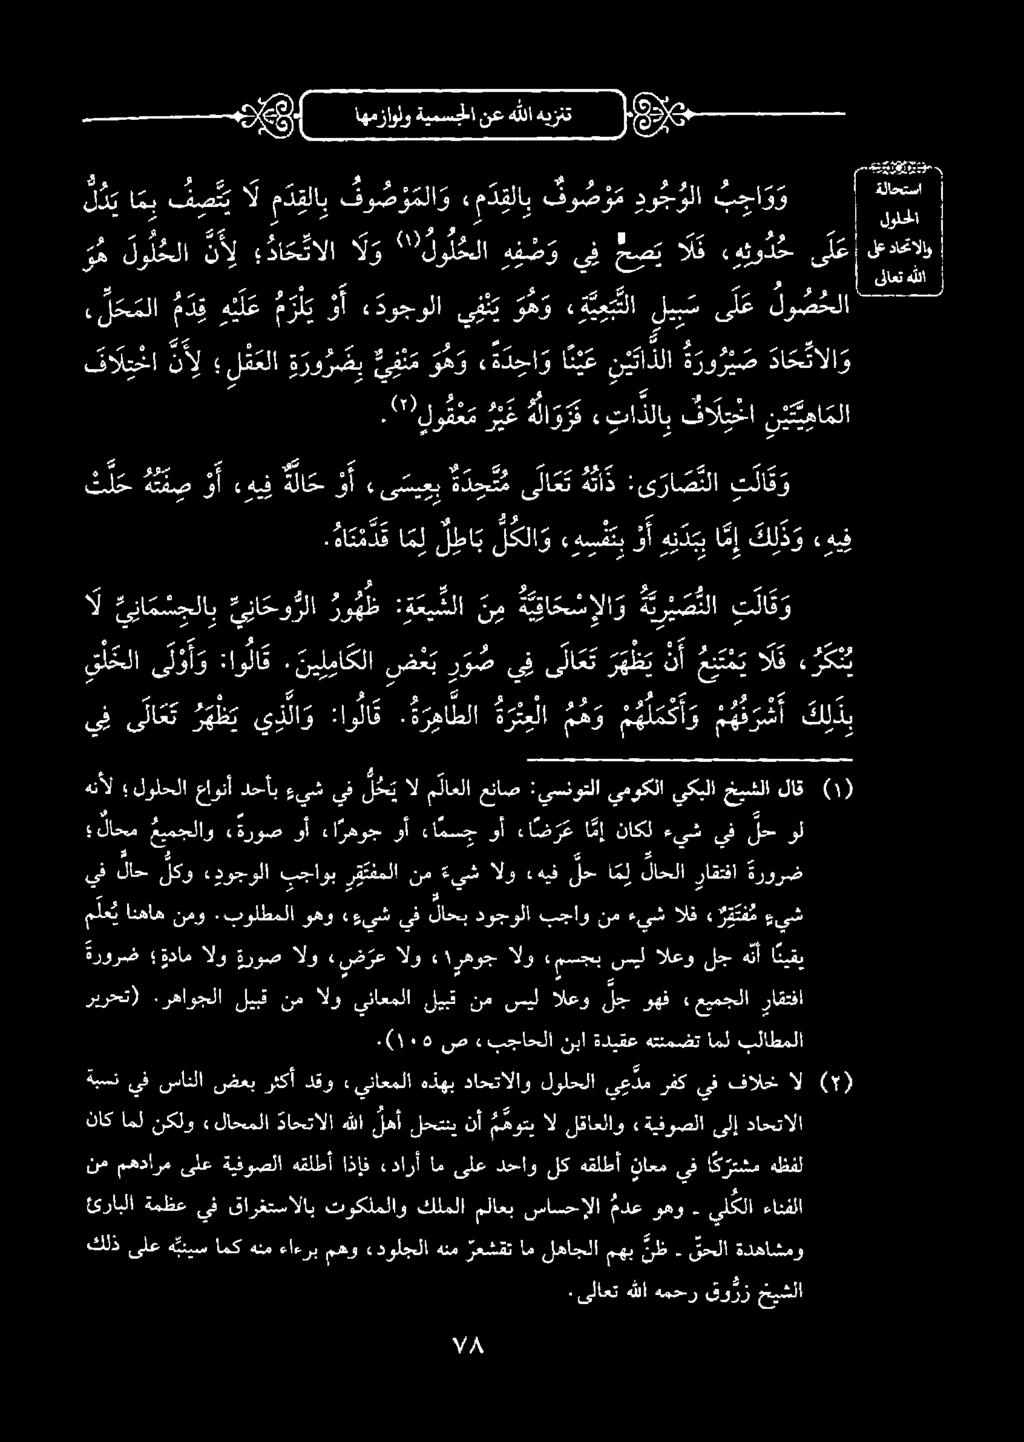 تنزيه الله عن الجسمية ولوازمها
استحالة
الحلول
والاتحاد على
الله تعالى
وَوَاجِبُ الوُجُودِ مَوْصُوفٌ بِالقِدَمِ، وَالمَوْصُوفُ بِالقِدَمِ لَا يَتَّصِفُ بِمَا يَدُلُّ
عَلَى حُدُوثِهِ، فَلَا يَصِحُّ فِي وَصْفِهِ الحُلُولُ(١) وَلَا الاتِّحَادُ؛ لِأَنَّ الحُلُولَ هُوَ
الحُصُولُ عَلَى سَبِيلِ التَّبَعِيَّةِ، وَهُوَ يَنْفِي الوجودَ، أَوْ يَلْزَمُ عَلَيْهِ قِدَمُ المَحَلِّ،
وَالاتِّحَادَ صَيْرُورَةُ الذَّاتَيْنِ عَيْنًا وَاحِدَةً، وَهُوَ مَنْفِيٌّ بِضَرُورَةِ العَقْلِ؛ لِأَنَّ اخْتِلَافَ
المَاهِيَّتَيْنِ اخْتِلَافٌ بِالذَّاتِ، فَزَوَالُهُ غَيْرُ مَعْقُولٍ(٢).
وَقَالَتِ النَّصَارَى: ذَاتُهُ تَعَالَى مُتَّحِدَةٌ بِعِيسَى، أَوْ حَالَّةٌ فِيهِ، أَوْ صِفَتُهُ حَلَّتْ
فِيهِ، وَذَلِكَ إِمَّا بِبَدَنِهِ أَوْ بِنَفْسِهِ، وَالكُلُّ بَاطِلٌ لِمَا قَدَّمْنَاهُ.
وَقَالَتِ النُّصَيْرِيَّةُ وَالإِسْحَاقِيَّةُ مِنَ الشِّيعَةِ: ظُهُورُ الرُّوحَانِيِّ بِالجِسْمَانِيِّ لَا
يُنْكَرُ، فَلَا يَمْتَنِعُ أَنْ يَظْهَرَ تَعَالَى فِي صُوَرِ بَعْضِ الكَامِلِينَ. قَالُوا: وَأَوْلَى الخَلْقِ
بِذَلِكَ أَشْرَفُهُمْ وَأَكْمَلُهُمْ وَهُمُ الْعِتْرَةُ الطَّاهِرَةُ. قَالُوا: وَالَّذِي يَظْهَرُ تَعَالَى فِي
(١) قال الشيخ البكي الكومي التونسي: صانع العالَم لا يَحُلُّ في شيءٍ بأحد أنواع الحلول؛ لأنه
لو حلَّ في شيء لكان إمَّا عَرَضًا، أو جِسمًا، أو جوهرًا، أو صورةً، والجميعُ محالٌ؛
ضرورةَ افتقارِ الحالِّ لِمَا حلَّ فيه، ولا شيءَ من المفتَقِرِ بواجبِ الوجودِ، وكلُّ حالٍّ في
شيءٍ مُفتَقِرٌ، فلا شيء من واجبِ الوجود بحالٍّ في شيءٍ، وهو المطلوب. ومن هاهنا يُعلَم
يقينًا أنّه جل وعلا ليس بجسمٍ، ولا جوهرٍ، ولا عَرَضٍ، ولا صورةٍ ولا مادةٍ؛ ضرورةَ
افتقارِ الجميع، فهو جلَّ وعلا ليس من قبيل المعاني ولا من قبيل الجواهر. (تحرير
المطالب لما تضمنته عقيدة ابن الحاجب، ص ١٠٥).
(٢) لا خلاف في كفر مدَّعِي الحلول والاتحاد بهذه المعاني، وقد أكثر بعض الناس في نسبة
الاتحاد إلى الصوفية، والعاقل لا يتوهَّمُ أن ينتحل أهلُ الله الاتحادَ المحال، ولكن لما كان
لفظه مشتركًا في معانٍ أطلقه كل واحد على ما أراد، فإذا أطلقه الصوفية على مرادهم من
الفناء الكُلي ـ وهو عدمُ الإحساس بعالم الملك والملكوت بالاستغراق في عظمة البارئ
ومشاهدة الحقّ ـ ظنَّ بهم الجاهل ما تقشعرّ منه الجلود، وهم برءاء منه كما سينبِّه على ذلك
الشيخ زرُّوق رحمه الله تعالى.
٧٨